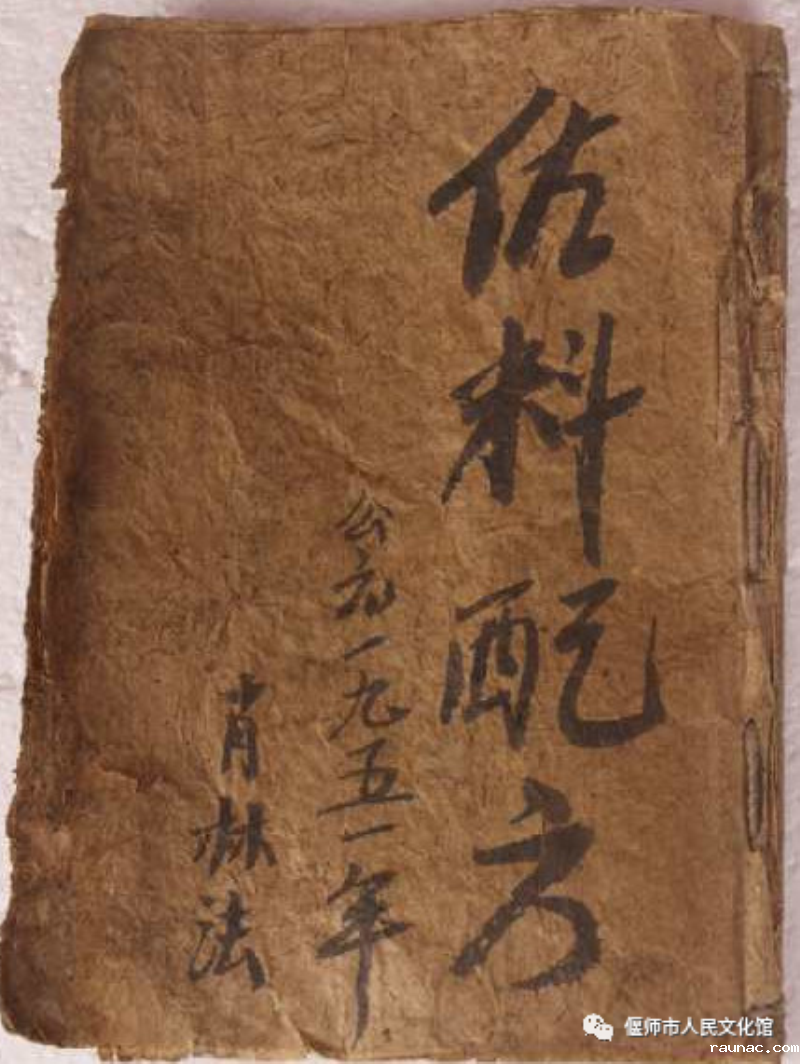 佐料配方
公元一九五一年
肖林法
偃师市人民文化馆
raunac.com